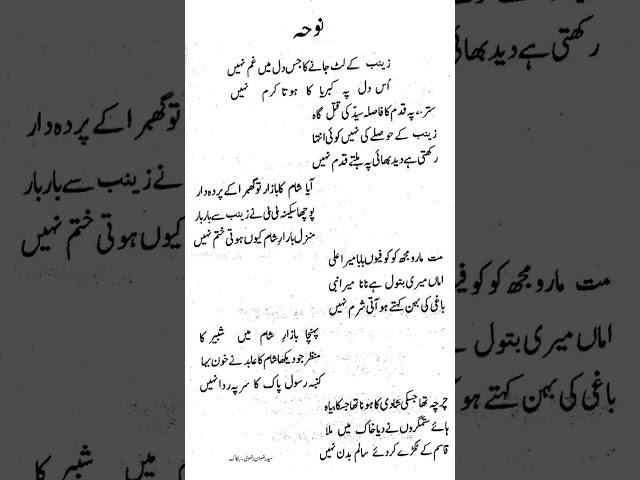 نوحہ
زینب کے لٹ جانے کا جس دل میں غم نہیں
اُس دل پہ کبریا کا ہوتا کرم نہیں
ستر۷۰ پہ قدم کا فاصلہ سیدؑ کی قتل گاہ
زینب کے حوصلے کی نہیں کوئی انتہا
رکھتی ہے دید بھائی پہ ہلتے قدم نہیں
آیا شام کا بازار تو گھبرا کے پردہ دار
پوچھا سکینہ بی بی نے زینب سے بار بار
منزل بازارِ شام کیوں ہوتی ختم نہیں
مت مارو مجھ کو کوفیوں بابا میرا علی
اماں میری بتول ہے نانا میرا نبی
باغی کی بہن کہتے ہو آتی شرم نہیں
پہنچا بازارِ شام میں شبیر کا
منظر جو دیکھا شام کا عابد نے خون بہا
کنبہ رسول پاک کا سر پہ ردا نہیں
چرچہ تھا جسکی شادی کا ہونا تھا جسکا بیاہ
ہائے ستمگروں نے دیا خاک میں ملا
قاسم کے ٹکڑے کر دئے سالم بدن نہیں